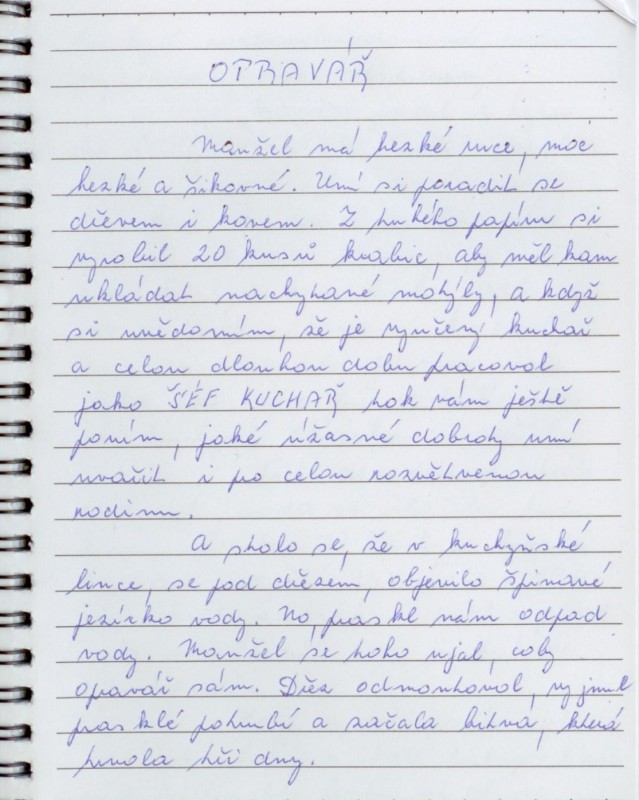 OPRAVÁŘ
Manžel má hezké ruce, moc
hezké a šikovné. Umí si poradit se
dřevem i kovem. Z tuhého papíru si
vyrobil 20 kusů krabic, aby měl kam
ukládat nachytané motýly, a když
si uvědomím, že je vyučený kuchař
a celou dlouhou dobu pracoval
jako ŠÉF KUCHAŘ tok vám ještě
povím, jaké úžasné dobroty umí
uvařit i po celou rozvětvenou
rodinu.
A stalo se, že v kuchyňské
lince, se pod dřezem, objevilo špinavé
jezírko vody. No, praskl nám odpad
vody. Manžel se toho ujal, coby
opravář sám. Dřez odmontoval, vyjmul
prasklé potrubí a začala bitva, která
trvala tři dny.